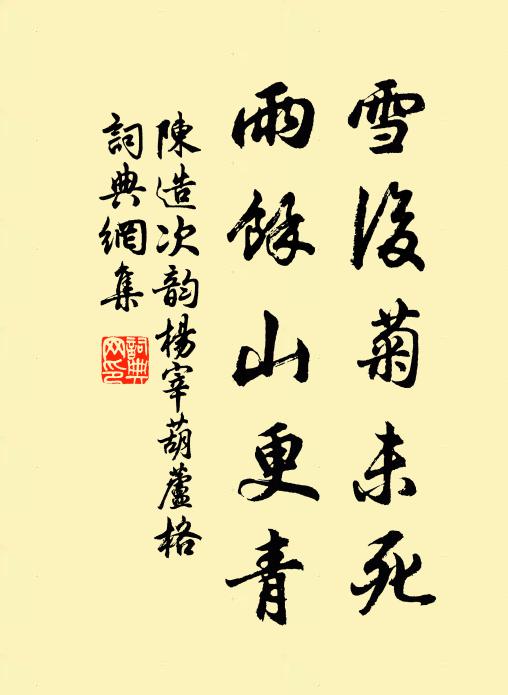 雪後菊未死
雨餘山更青
陳造次韵楊宰葫蘆格
詞典網集
詞典网印